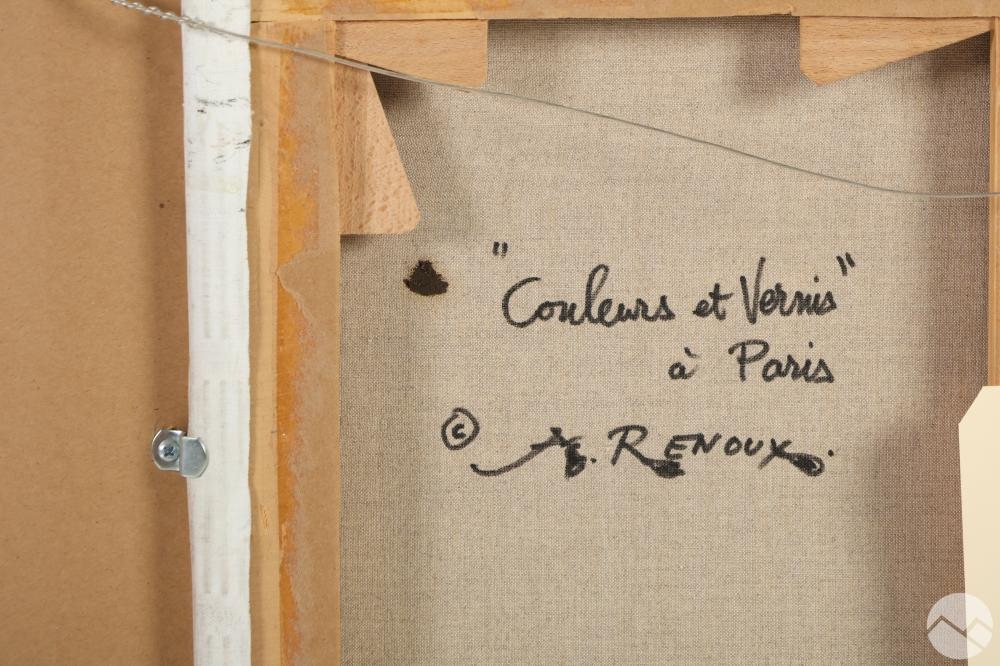 "Couleurs et Vernis"
à Paris
© A. RENOUX.